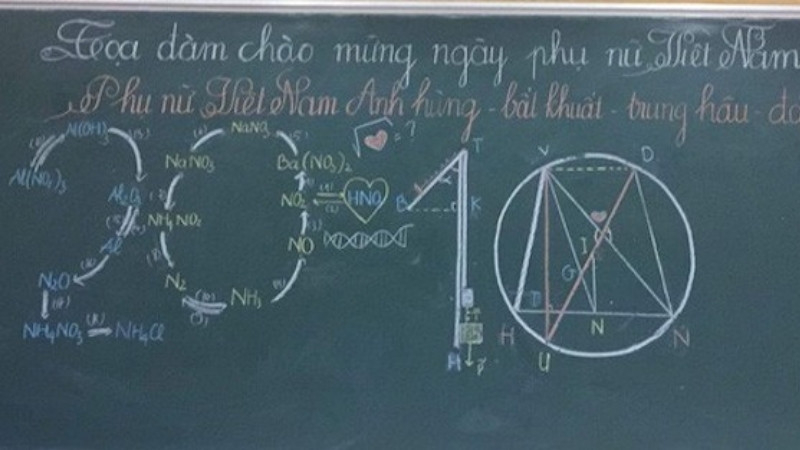 Tọa đàm chào mừng ngày phụ nữ Việt Nam
Phụ nữ Việt Nam Anh hùng - bất khuất - trung hậu - đa
Al(OH)3
Al(NO3)3
Al2O3
Al
N2O
NH4NO3
NH4Cl
NaNO3
NaNO2
NH4NO2
N2
NH3
NO
NO2
Ba(NO3)2
HNO3
√ = ?
T
B
K
V
D
I
G
H
N
N
U